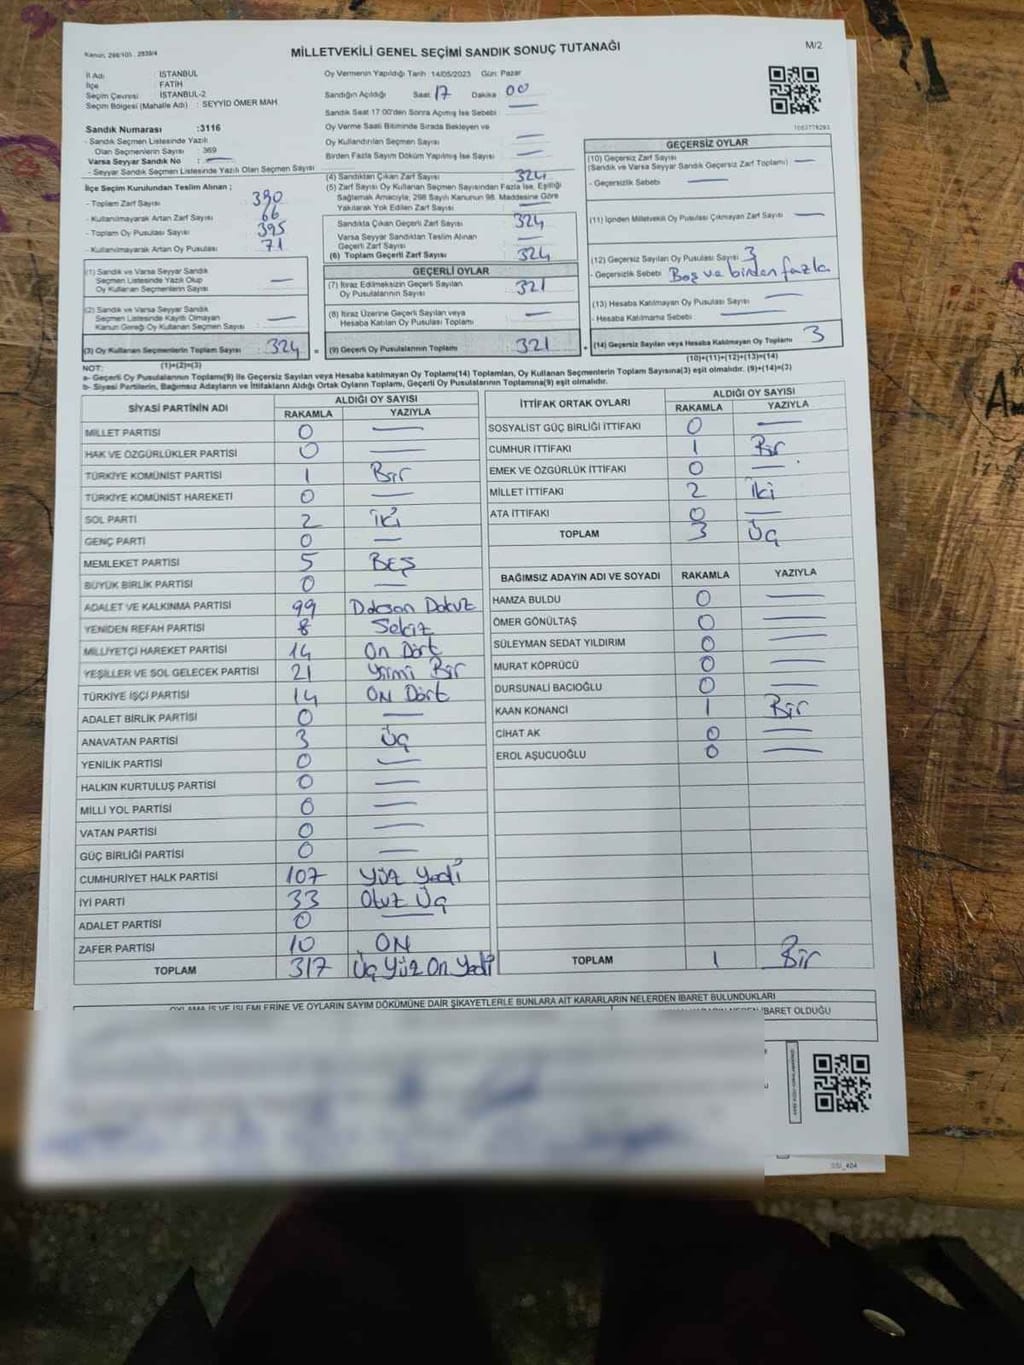 Kanun, 298/105 , 2839/4
MİLLETVEKİLİ GENEL SEÇİMİ SANDIK SONUÇ TUTANAĞI
M/2
İl Adı İSTANBUL
İlçe FATİH
Seçim Çevresi İSTANBUL-2
Seçim Bölgesi (Mahalle Adı) : SEYYİD ÖMER MAH
Oy Vermenin Yapıldığı Tarih 14/05/2023 Gün: Pazar
Sandığın Açıldığı Saat 17 Dakika 00
Sandık Saat 17:00'den Sonra Açılmış İse Sebebi —
Oy Verme Saati Bitiminde Sırada Bekleyen ve
Oy Kullandırılan Seçmen Sayısı —
Birden Fazla Sayım Döküm Yapılmış İse Sayısı —
Sandık Numarası :3116
- Sandık Seçmen Listesinde Yazılı
Olan Seçmenlerin Sayısı : 369
Varsa Seyyar Sandık No : —
- Seyyar Sandık Seçmen Listesinde Yazılı Olan Seçmen Sayısı
İlçe Seçim Kurulundan Teslim Alınan ;
- Toplam Zarf Sayısı 390
- Kullanılmayarak Artan Zarf Sayısı 66
- Toplam Oy Pusulası Sayısı 395
- Kullanılmayarak Artan Oy Pusulası 71
(1) Sandık ve Varsa Seyyar Sandık
Seçmen Listesinde Yazılı Olup
Oy Kullanan Seçmenlerin Sayısı —
(2) Sandık ve Varsa Seyyar Sandık
Seçmen Listesinde Kayıtlı Olmayan
Kanun Gereği Oy Kullanan Seçmen Sayısı —
(3) Oy Kullanan Seçmenlerin Toplam Sayısı 324 =
(1)+(2)=(3)
(4) Sandıktan Çıkan Zarf Sayısı 324
(5) Zarf Sayısı Oy Kullanan Seçmen Sayısından Fazla İse, Eşitliği
Sağlamak Amacıyla; 298 Sayılı Kanunun 98. Maddesine Göre
Yakılarak Yok Edilen Zarf Sayısı —
Sandıkta Çıkan Geçerli Zarf Sayısı 324
Varsa Seyyar Sandıktan Teslim Alınan
Geçerli Zarf Sayısı —
(6) Toplam Geçerli Zarf Sayısı 324
GEÇERLİ OYLAR
(7) İtiraz Edilmeksizin Geçerli Sayılan
Oy Pusulalarının Sayısı 321
(8) İtiraz Üzerine Geçerli Sayılan veya
Hesaba Katılan Oy Pusulası Toplamı —
(9) Geçerli Oy Pusulalarının Toplamı 321 +
1063778293
GEÇERSİZ OYLAR
(10) Geçersiz Zarf Sayısı
(Sandık ve Varsa Seyyar Sandık Geçersiz Zarf Toplamı) —
- Geçersizlik Sebebi : —
(11) İçinden Milletvekili Oy Pusulası Çıkmayan Zarf Sayısı —
(12) Geçersiz Sayılan Oy Pusulası Sayısı 3
- Geçersizlik Sebebi Boş ve birden fazla
(13) Hesaba Katılmayan Oy Pusulası Sayısı —
- Hesaba Katılmama Sebebi : —
(14) Geçersiz Sayılan veya Hesaba Katılmayan Oy Toplamı 3
(10)+(11)+(12)+(13)=(14)
NOT:
a- Geçerli Oy Pusulalarının Toplamı(9) ile Geçersiz Sayılan veya Hesaba katılmayan Oy Toplamı(14) Toplamları, Oy Kullanan Seçmenlerin Toplam Sayısına(3) eşit olmalıdır. (9)+(14)=(3)
b- Siyasi Partilerin, Bağımsız Adayların ve İttifakların Aldığı Ortak Oyların Toplamı, Geçerli Oy Pusulalarının Toplamına(9) eşit olmalıdır.
SİYASİ PARTİNİN ADI ALDIĞI OY SAYISI
RAKAMLA YAZIYLA
MİLLET PARTİSİ 0 —
HAK VE ÖZGÜRLÜKLER PARTİSİ 0 —
TÜRKİYE KOMÜNİST PARTİSİ 1 Bir
TÜRKİYE KOMÜNİST HAREKETİ 0 —
SOL PARTİ 2 İki
GENÇ PARTİ 0 —
MEMLEKET PARTİSİ 5 BEŞ
BÜYÜK BİRLİK PARTİSİ 0 —
ADALET VE KALKINMA PARTİSİ 99 Doksan Dokuz
YENİDEN REFAH PARTİSİ 8 Sekiz
MİLLİYETÇİ HAREKET PARTİSİ 14 On Dört
YEŞİLLER VE SOL GELECEK PARTİSİ 21 Yirmi Bir
TÜRKİYE İŞÇİ PARTİSİ 14 ON Dört
ADALET BİRLİK PARTİSİ 0 —
ANAVATAN PARTİSİ 3 Üç
YENİLİK PARTİSİ 0 —
HALKIN KURTULUŞ PARTİSİ 0 —
MİLLİ YOL PARTİSİ 0 —
VATAN PARTİSİ 0 —
GÜÇ BİRLİĞİ PARTİSİ 0 —
CUMHURİYET HALK PARTİSİ 107 Yüz Yedi
İYİ PARTİ 33 Otuz Üç
ADALET PARTİSİ 0 —
ZAFER PARTİSİ 10 ON
TOPLAM 317 Üç Yüz On Yedi
İTTİFAK ORTAK OYLARI ALDIĞI OY SAYISI
RAKAMLA YAZIYLA
SOSYALİST GÜÇ BİRLİĞİ İTTİFAKI 0 —
CUMHUR İTTİFAKI 1 Bir
EMEK VE ÖZGÜRLÜK İTTİFAKI 0 —
MİLLET İTTİFAKI 2 İki
ATA İTTİFAKI 0 —
TOPLAM 3 Üç
BAĞIMSIZ ADAYIN ADI VE SOYADI RAKAMLA YAZIYLA
HAMZA BULDU 0 —
ÖMER GÖNÜLTAŞ 0 —
SÜLEYMAN SEDAT YILDIRIM 0 —
MURAT KÖPRÜCÜ 0 —
DURSUNALİ BACIOĞLU 0 —
KAAN KONANCI 1 Bir
CİHAT AK 0 —
EROL AŞUCUOĞLU 0 —
TOPLAM 1 Bir
OYLAMA İŞ VE İŞLEMLERİNE VE OYLARIN SAYIM DÖKÜMÜNE DAİR ŞİKAYETLERLE BUNLARA AİT KARARLARIN NELERDEN İBARET BULUNDUKLARI
İBARET OLDUĞU
SSI_404